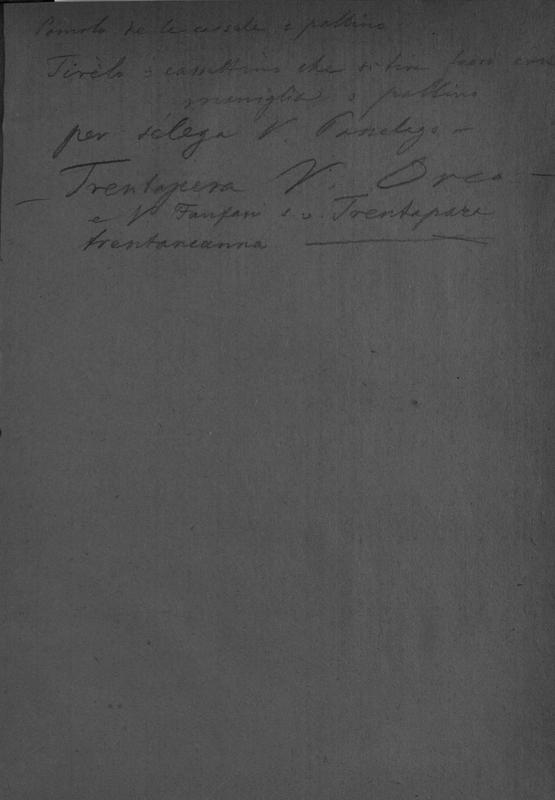 Pomolo de le cassele = pallino
Tirèla = cassettino che si tira fuori con
maniglia o pallino
per sèlega V. Panelago —
— Trentapera V. Orco —
e V. Fanfani s. v. Trentapara
trentancanna